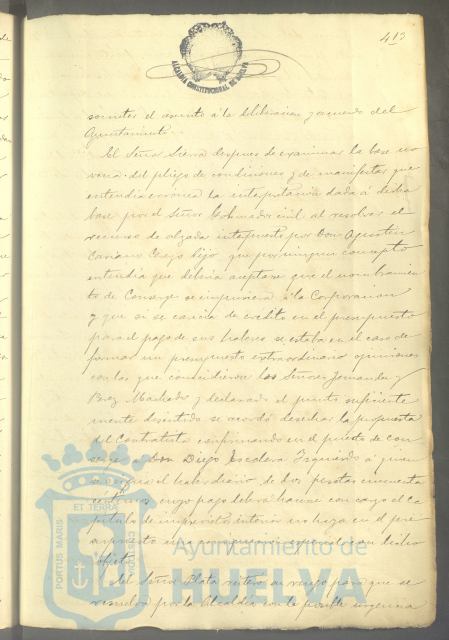 413
ALCALDIA CONSTITUCIONAL DE HUELVA
someter el asunto á la deliberacion y acuerdo del
Ayuntamiento.
El Señor Sierra despues de examinar la base no
vena del pliego de condiciones y de manifestar que
entendia erronea la interpretacion dada á dicha
base por el Señor Gobernador civil al resolver el
recurso de alzada interpuesto por Don Agustin
dijo que por ningun concepto
entendia que deberia aceptarse que el nombramien
to de Conserge se impusiera á la Corporacion
y que si se carecia de credito en el presupuesto
para el pago de sus haberes se estaba en el caso de
formar un presupuesto extraordinario opiniones
con las que coincidieron los Señores Fernandez y
Machado y declarado el punto suficiente
mente discutido se acordó desechar la propuesta
del Contratista confirmando en el puesto de con
serge á Don Diego Escalera Izquierdo á quien
se el haber diario de dos pesetas cincuenta
centimos cuyo pago deberá hacerse con cargo al ca
pitulo de imprevistos interin no haya en el pre
supuesto una consignacion especial con dicho
objeto.
Del Señor Plata reitero su ruego para que se
resuelva por la Alcaldia con la posible urgencia
PORTUS MARIS ET TERRÆ CUSTODIA
Ayuntamiento de
HUELVA